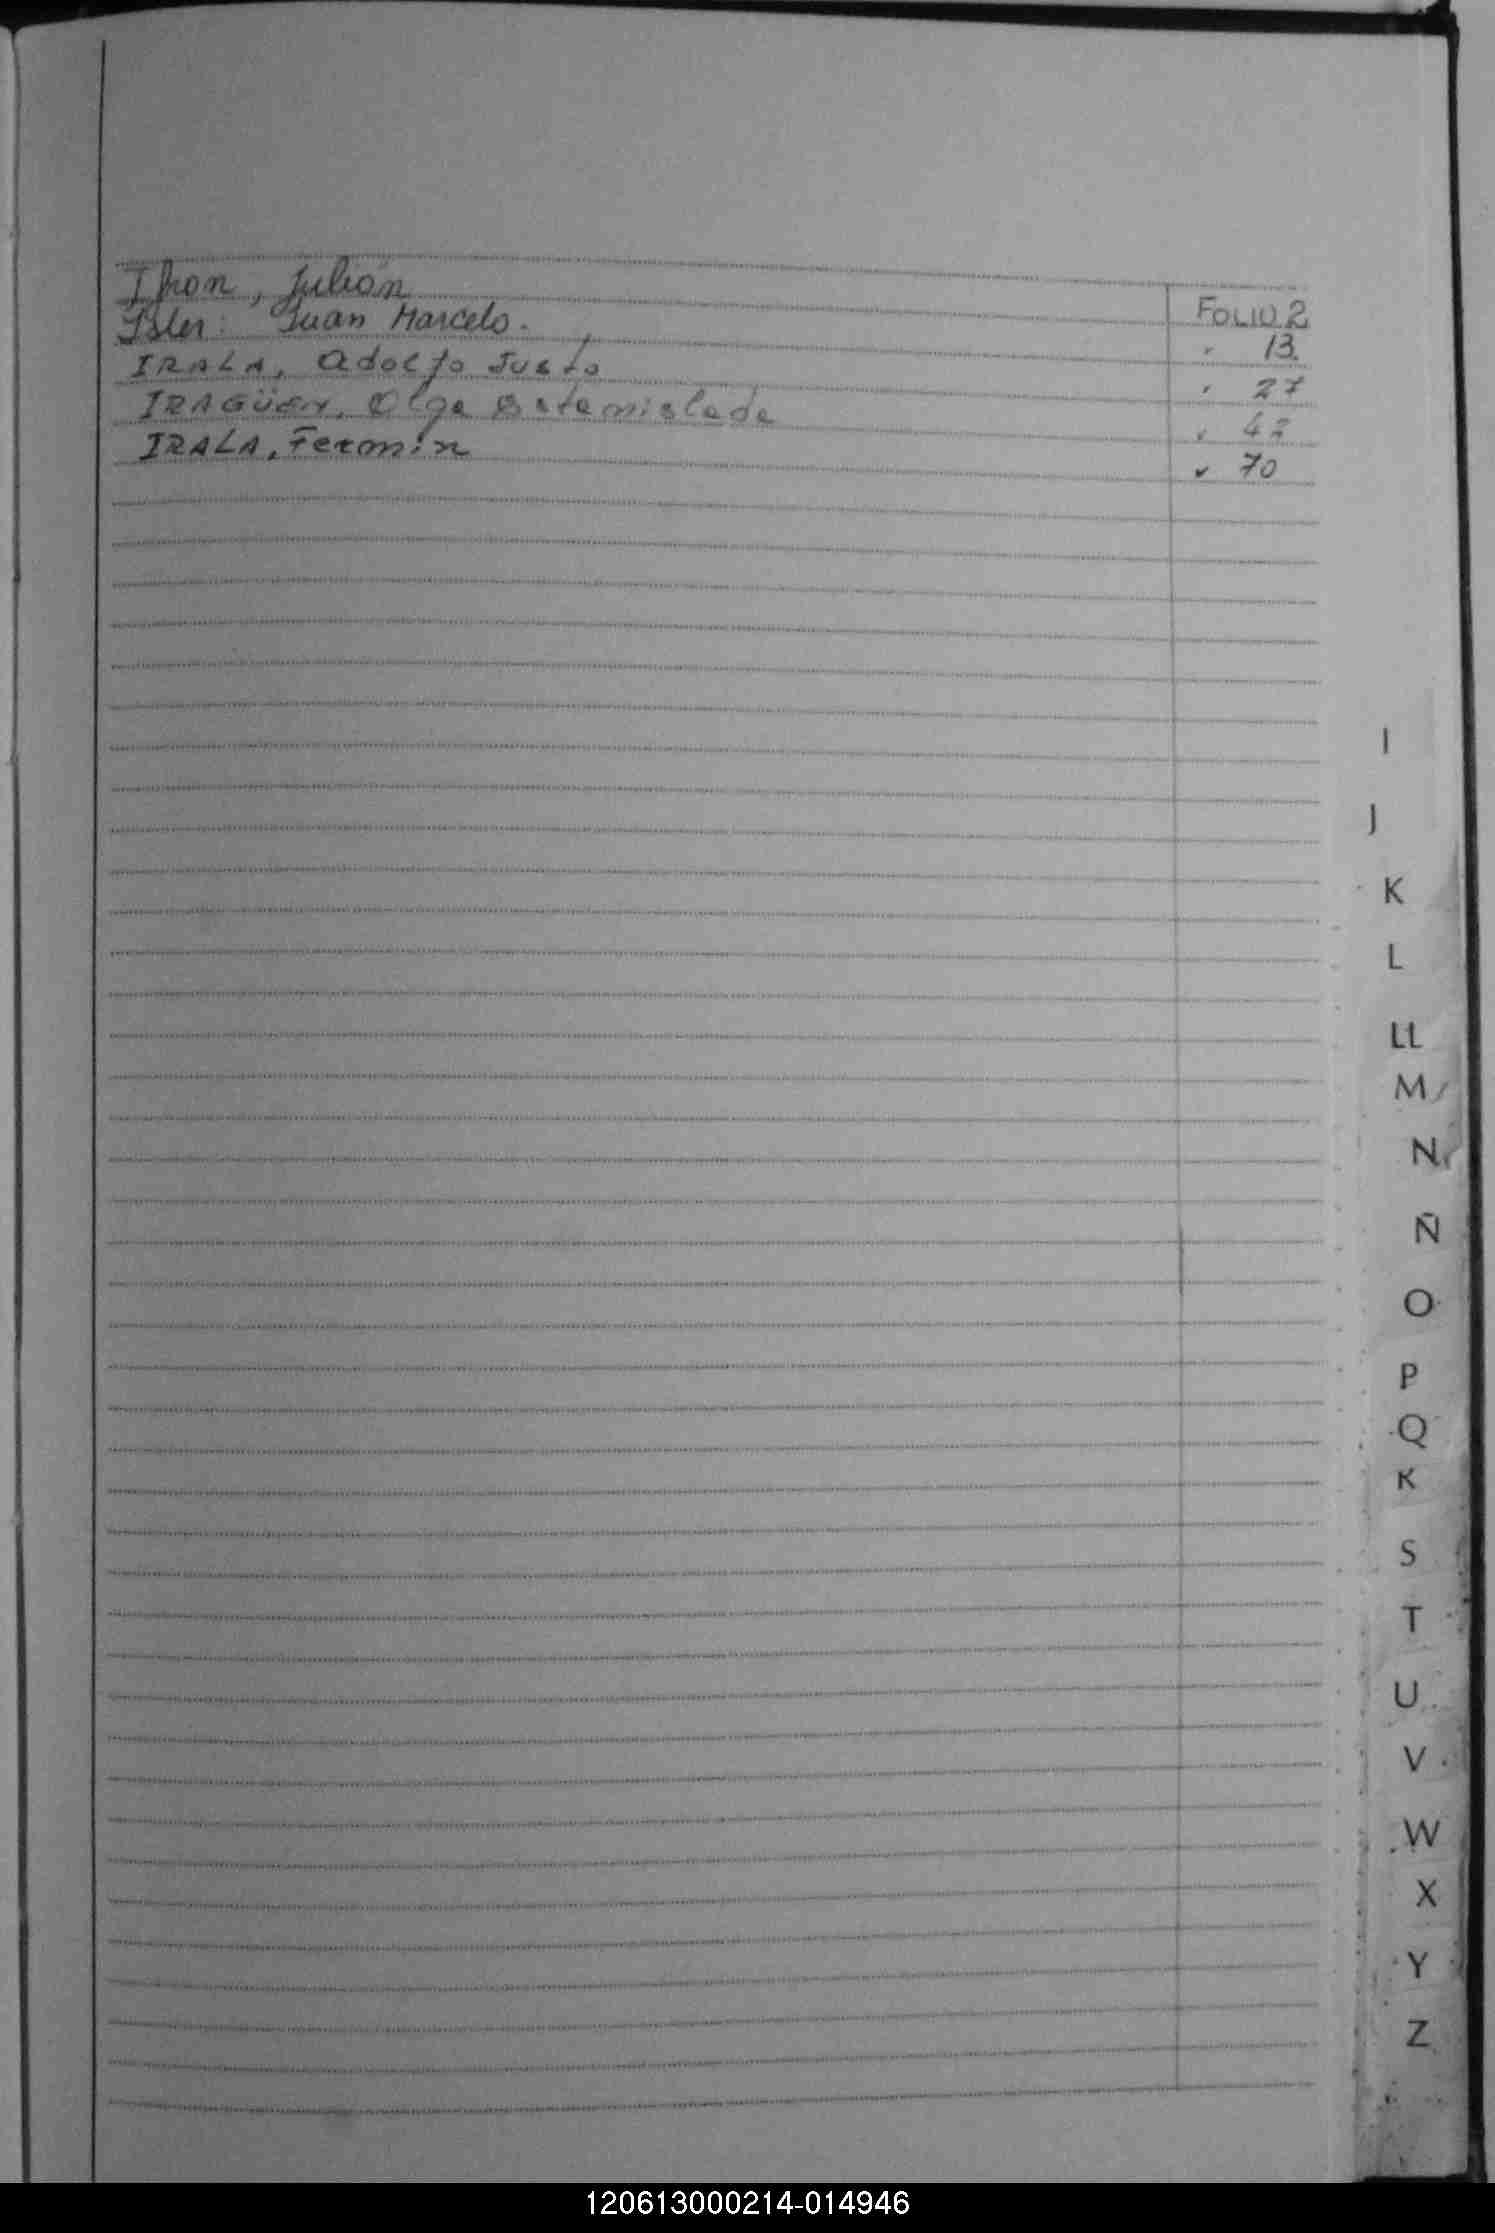 Ihon, Julián FOLIO 2
Isler: Juan Marcelo. " 13.
IRALA, Adolfo Justo " 27
IRAGÜEN, Olga Estanislada " 42
IRALA, Fermin " 70
I
J
K
L
LL
M
N
Ñ
O
P
Q
R
S
T
U
V
W
X
Y
Z
120613000214-014946